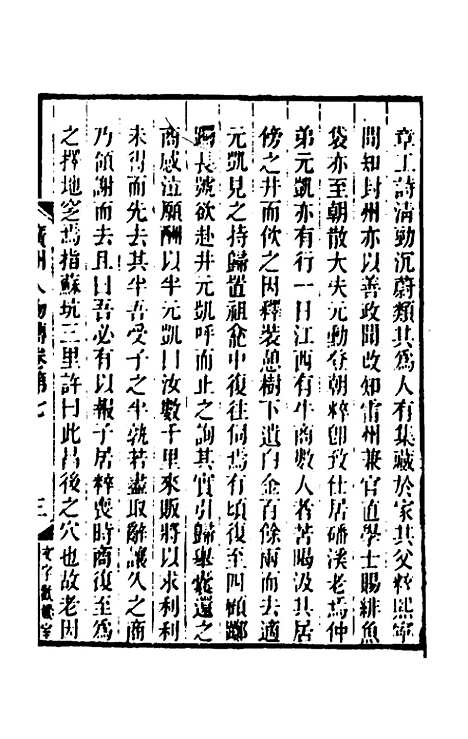 章工詩清勁沉蔚類其爲人有集藏於家其父粹熙寧
間知封州亦以善政聞改知雷州兼官直學士賜緋魚
袋亦至朝散大夫元勳登朝粹卽致仕居磻溪老焉仲
弟元凱亦有行一日江西有牛商數人者苦暍汲其居
傍之井而飮之因釋裝憩樹下遺白金百餘兩而去適
元凱見之持歸置祖龕中復往伺焉有頃復至四顧躑
躅長號欲赴井元凱呼而止之詢其實引歸舉囊還之
商感泣願酬以半元凱曰汝數千里來販將以求利利
未得而先去其半吾受子之半孰若盡取辭讓久之商
乃頓謝而去且曰吾必有以報子居粹喪時商復至爲
之擇地窆焉指蘇坑三里許曰此昌後之穴也故老因
廣州人物傳卷第七
三
文字歡娛室